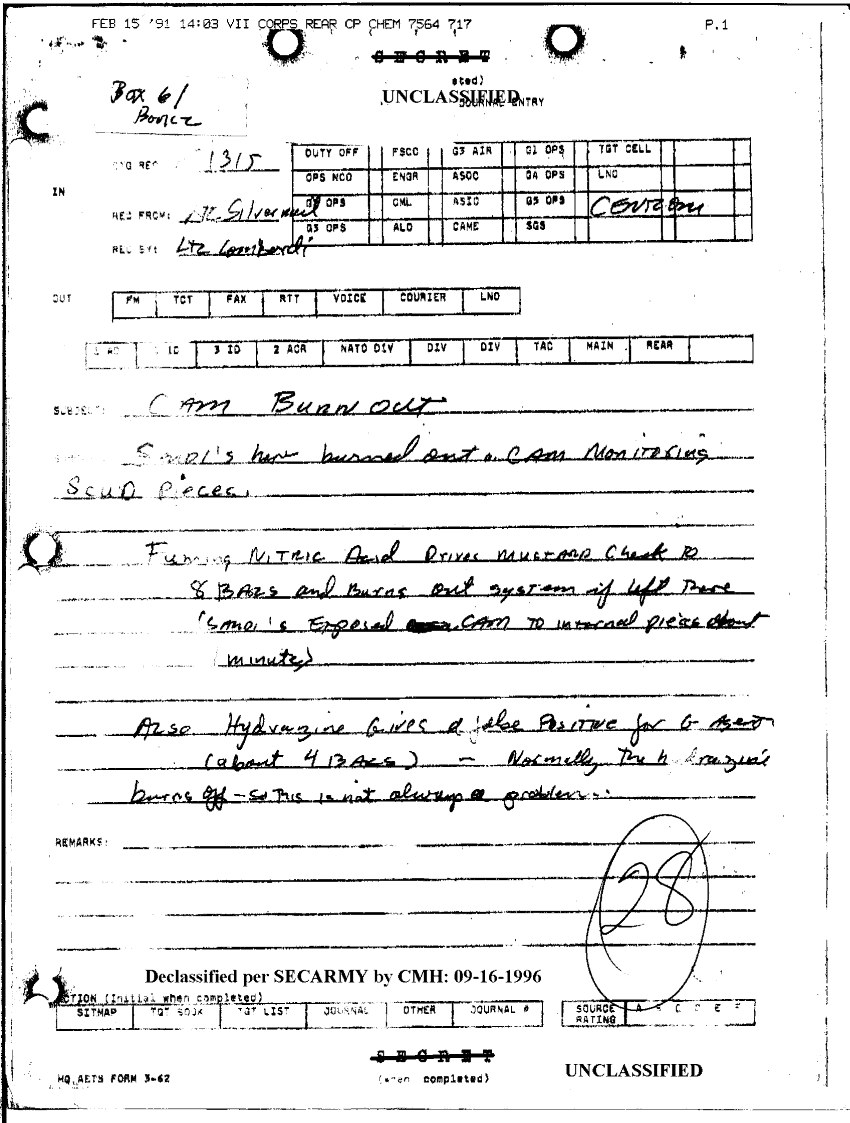 FEB 15 '91 14:03 VII CORPS REAR CP CHEM 7564 717 P.1
SECRET
UNCLASSIFIED
JOURNAL ENTRY
Box 6/
REC 1315
DUTY OFF FSCC G3 AIR G1 OPS TGT CELL
OPS NCO ENGR ASOC G4 OPS LNO
IN
REC FROM: LTC Silvernail
OPS CML ASIC G5 OPS CENTCOM
G3 OPS ALO CAME SGS
REC BY: Ltc Lombardi
OUT FM TCT FAX RTT VOICE COURIER LNO
1 AD 1 ID 3 ID 2 ACR NATO DIV DIV DIV TAC MAIN REAR
SUBJECT: CAM Burn out
Saudi's have burned out a CAM Monitoring
Scud Pieces.
Fuming Nitric Acid Drives mustard Check to
8 BARS and Burns out system if left there
Saudi's Exposed CAM to internal pieces about
1 minute)
Also Hydrazine Gives a false Positive for G Agent
(about 4 BARS) - Normally The hydrazine
burns off - so This is not always a problem.
REMARKS:
28
Declassified per SECARMY by CMH: 09-16-1996
ACTION (Initial when completed)
SITMAP TGT BOOK TGT LIST JOURNAL OTHER JOURNAL # SOURCE RATING A B C D E F
SECRET
HQ AETS FORM 3-62 (when completed) UNCLASSIFIED